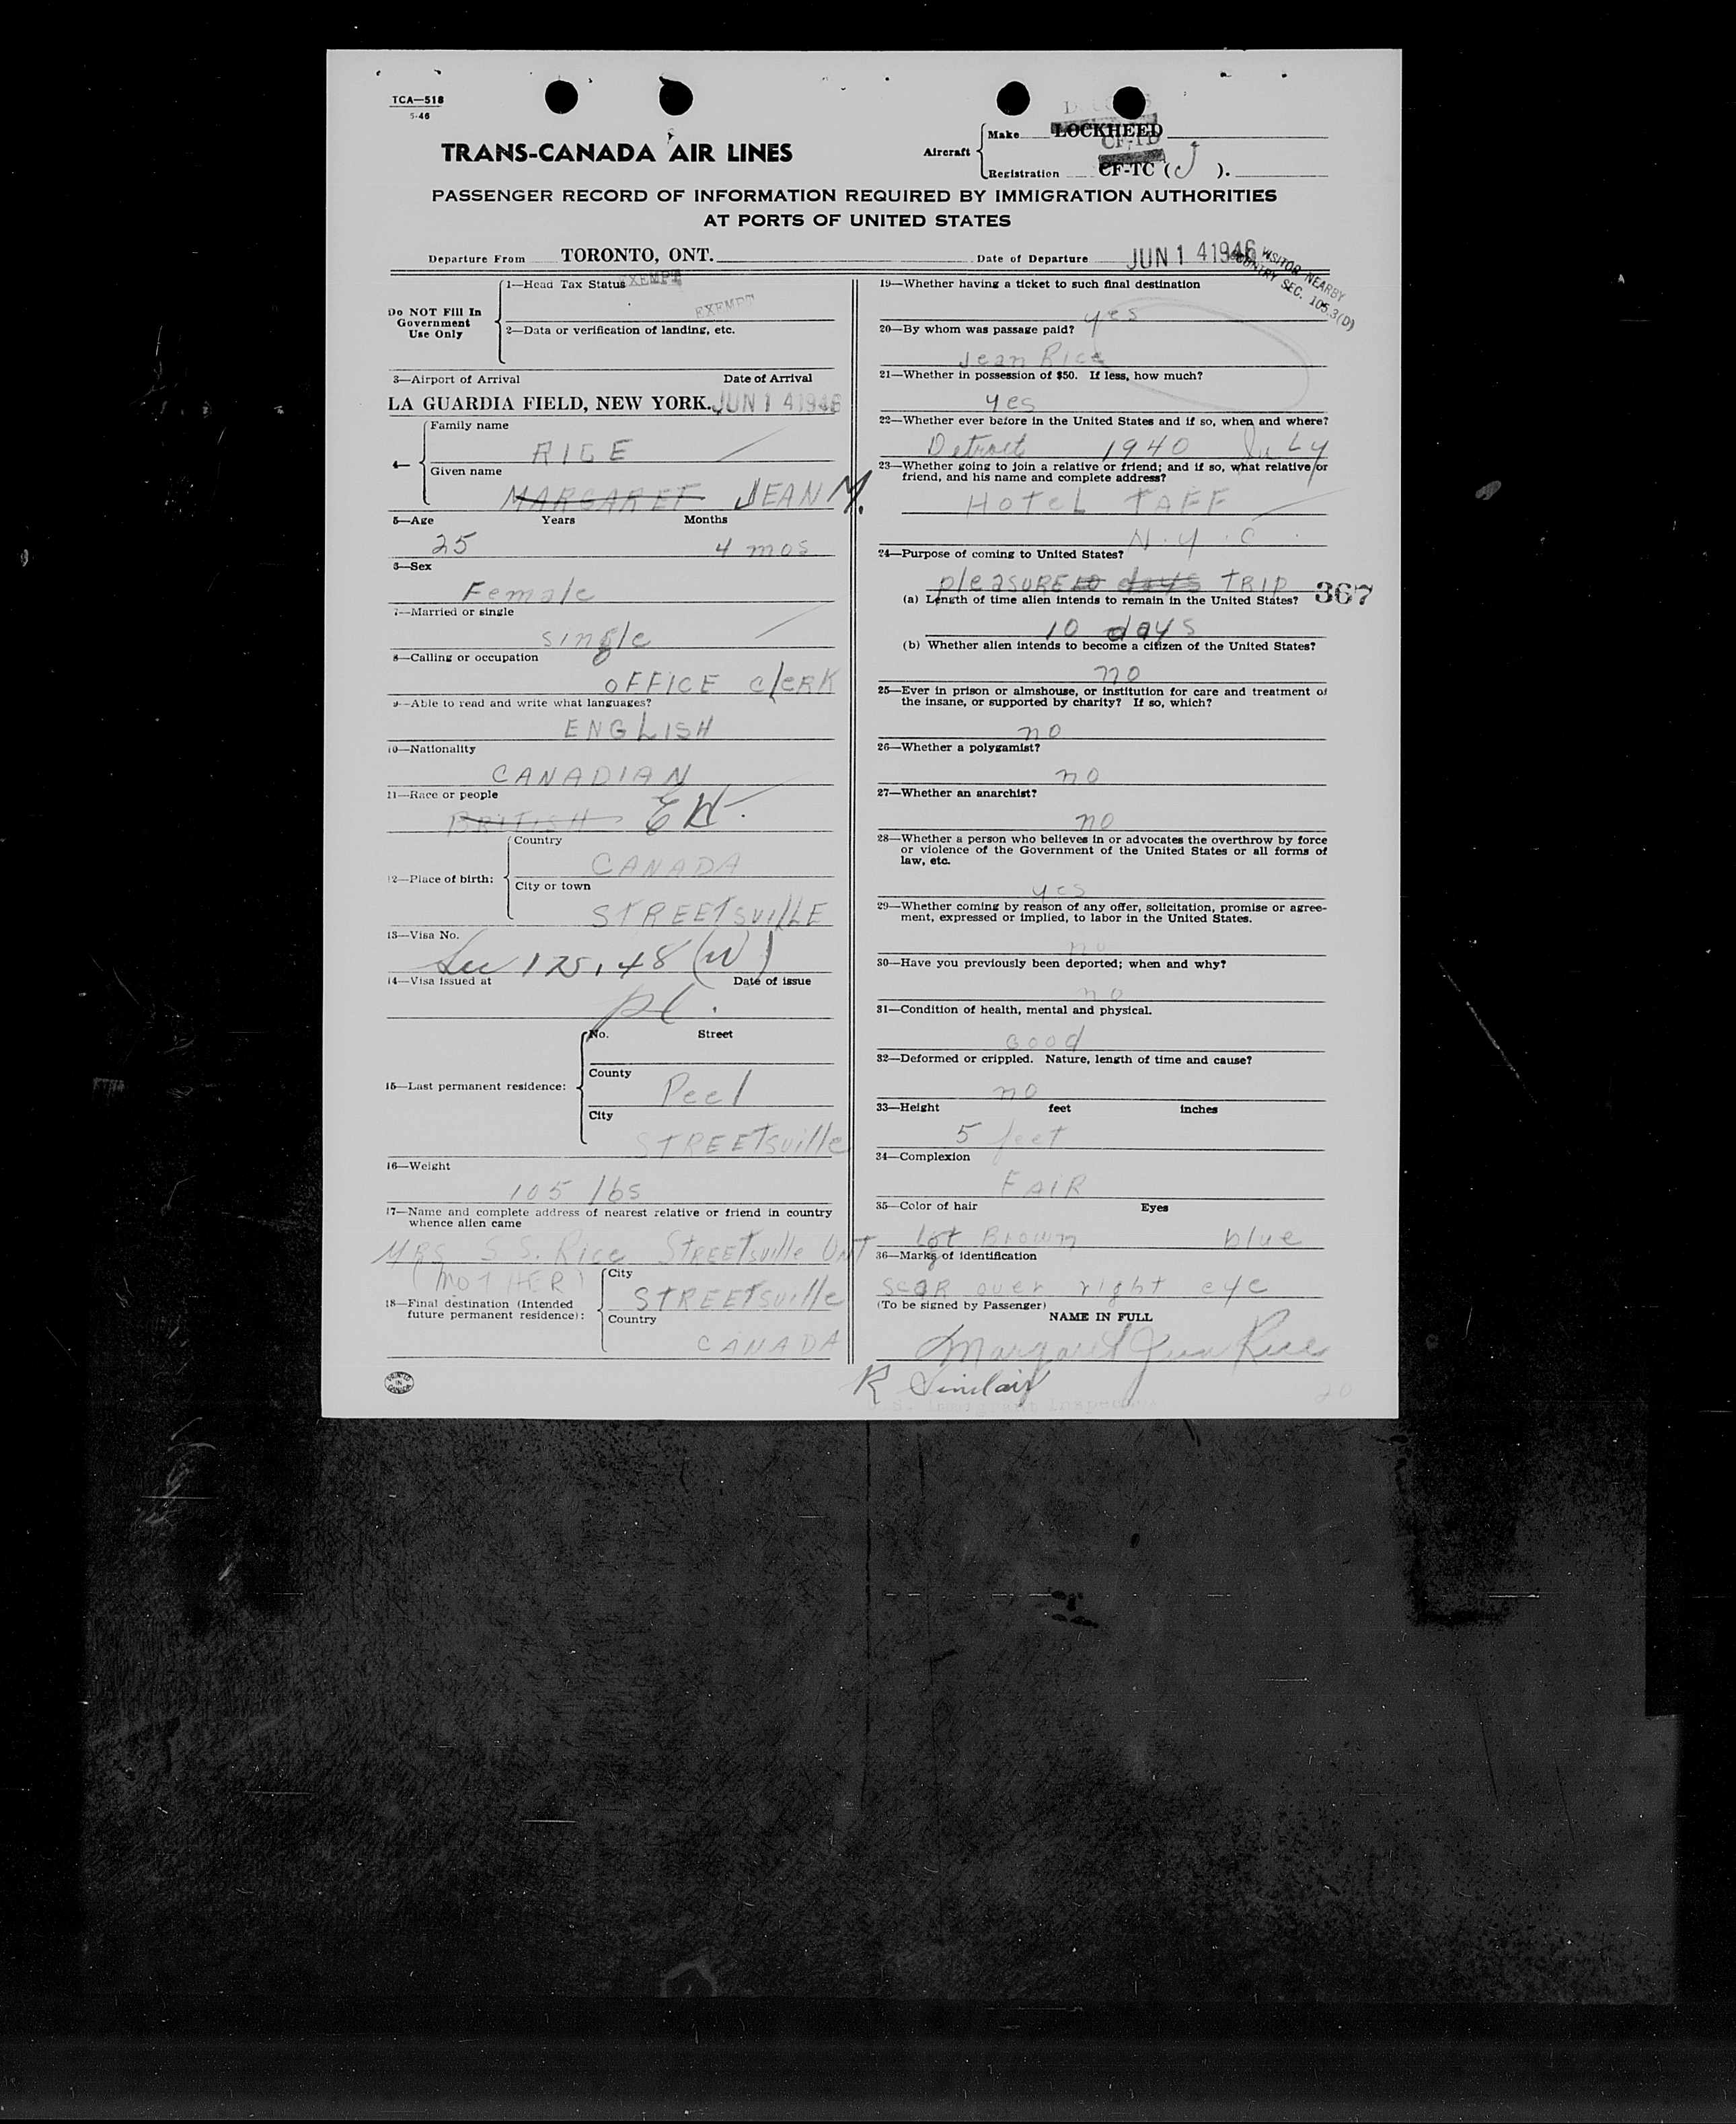 TCA—518
5-46
TRANS-CANADA AIR LINES
Aircraft
Make LOCKHEED
CF-TD
Registration CF-TC ( J ).
PASSENGER RECORD OF INFORMATION REQUIRED BY IMMIGRATION AUTHORITIES
AT PORTS OF UNITED STATES
Departure From TORONTO, ONT. Date of Departure JUN 1 4 1946
VISITOR NEARBY
COUNTRY SEC. 105.3(D)
Do NOT Fill In
Government
Use Only
1—Head Tax Status EXEMPT
EXEMPT
2—Data or verification of landing, etc.
3—Airport of Arrival Date of Arrival
LA GUARDIA FIELD, NEW YORK. JUN 1 4 1946
4—
Family name
RICE
Given name
MARGARET JEAN M.
5—Age Years Months
25 4 mos
6—Sex
Female
7—Married or single
single
8—Calling or occupation
OFFICE clERK
9—Able to read and write what languages?
ENGLISH
10—Nationality
CANADIAN
11—Race or people
BRITISH
12—Place of birth:
Country
CANADA
City or town
STREETSVILLE
13—Visa No.
Sec 125.48 (W)
14—Visa issued at Date of issue
15—Last permanent residence:
No. Street
County
Peel
City
STREETSville
16—Weight
105 lbs
17—Name and complete address of nearest relative or friend in country
whence alien came
MRS S.S. Rice STREETsville ONT
(MOTHER)
18—Final destination (Intended
future permanent residence):
City
STREETSville
Country
CANADA
PRINTED
IN
CANADA
19—Whether having a ticket to such final destination
yes
20—By whom was passage paid?
Jean Rice
21—Whether in possession of $50. If less, how much?
yes
22—Whether ever before in the United States and if so, when and where?
Detroit 1940 JuLy
23—Whether going to join a relative or friend; and if so, what relative or
friend, and his name and complete address?
HOTEL TAFF
N.Y.C.
24—Purpose of coming to United States?
pleasURE 10 days TRIP
367
(a) Length of time alien intends to remain in the United States?
10 days
(b) Whether alien intends to become a citizen of the United States?
no
25—Ever in prison or almshouse, or institution for care and treatment of
the insane, or supported by charity? If so, which?
no
26—Whether a polygamist?
no
27—Whether an anarchist?
no
28—Whether a person who believes in or advocates the overthrow by force
or violence of the Government of the United States or all forms of
law, etc.
yes
29—Whether coming by reason of any offer, solicitation, promise or agree-
ment, expressed or implied, to labor in the United States.
no
30—Have you previously been deported; when and why?
no
31—Condition of health, mental and physical.
Good
32—Deformed or crippled. Nature, length of time and cause?
no
33—Height feet inches
5 feet
34—Complexion
FAIR
35—Color of hair Eyes
Lgt Brown blue
36—Marks of identification
scaR over right eye
(To be signed by Passenger)
NAME IN FULL
Margaret Jean Rice
R Sinclair
U.S. Immigrant Inspector
20